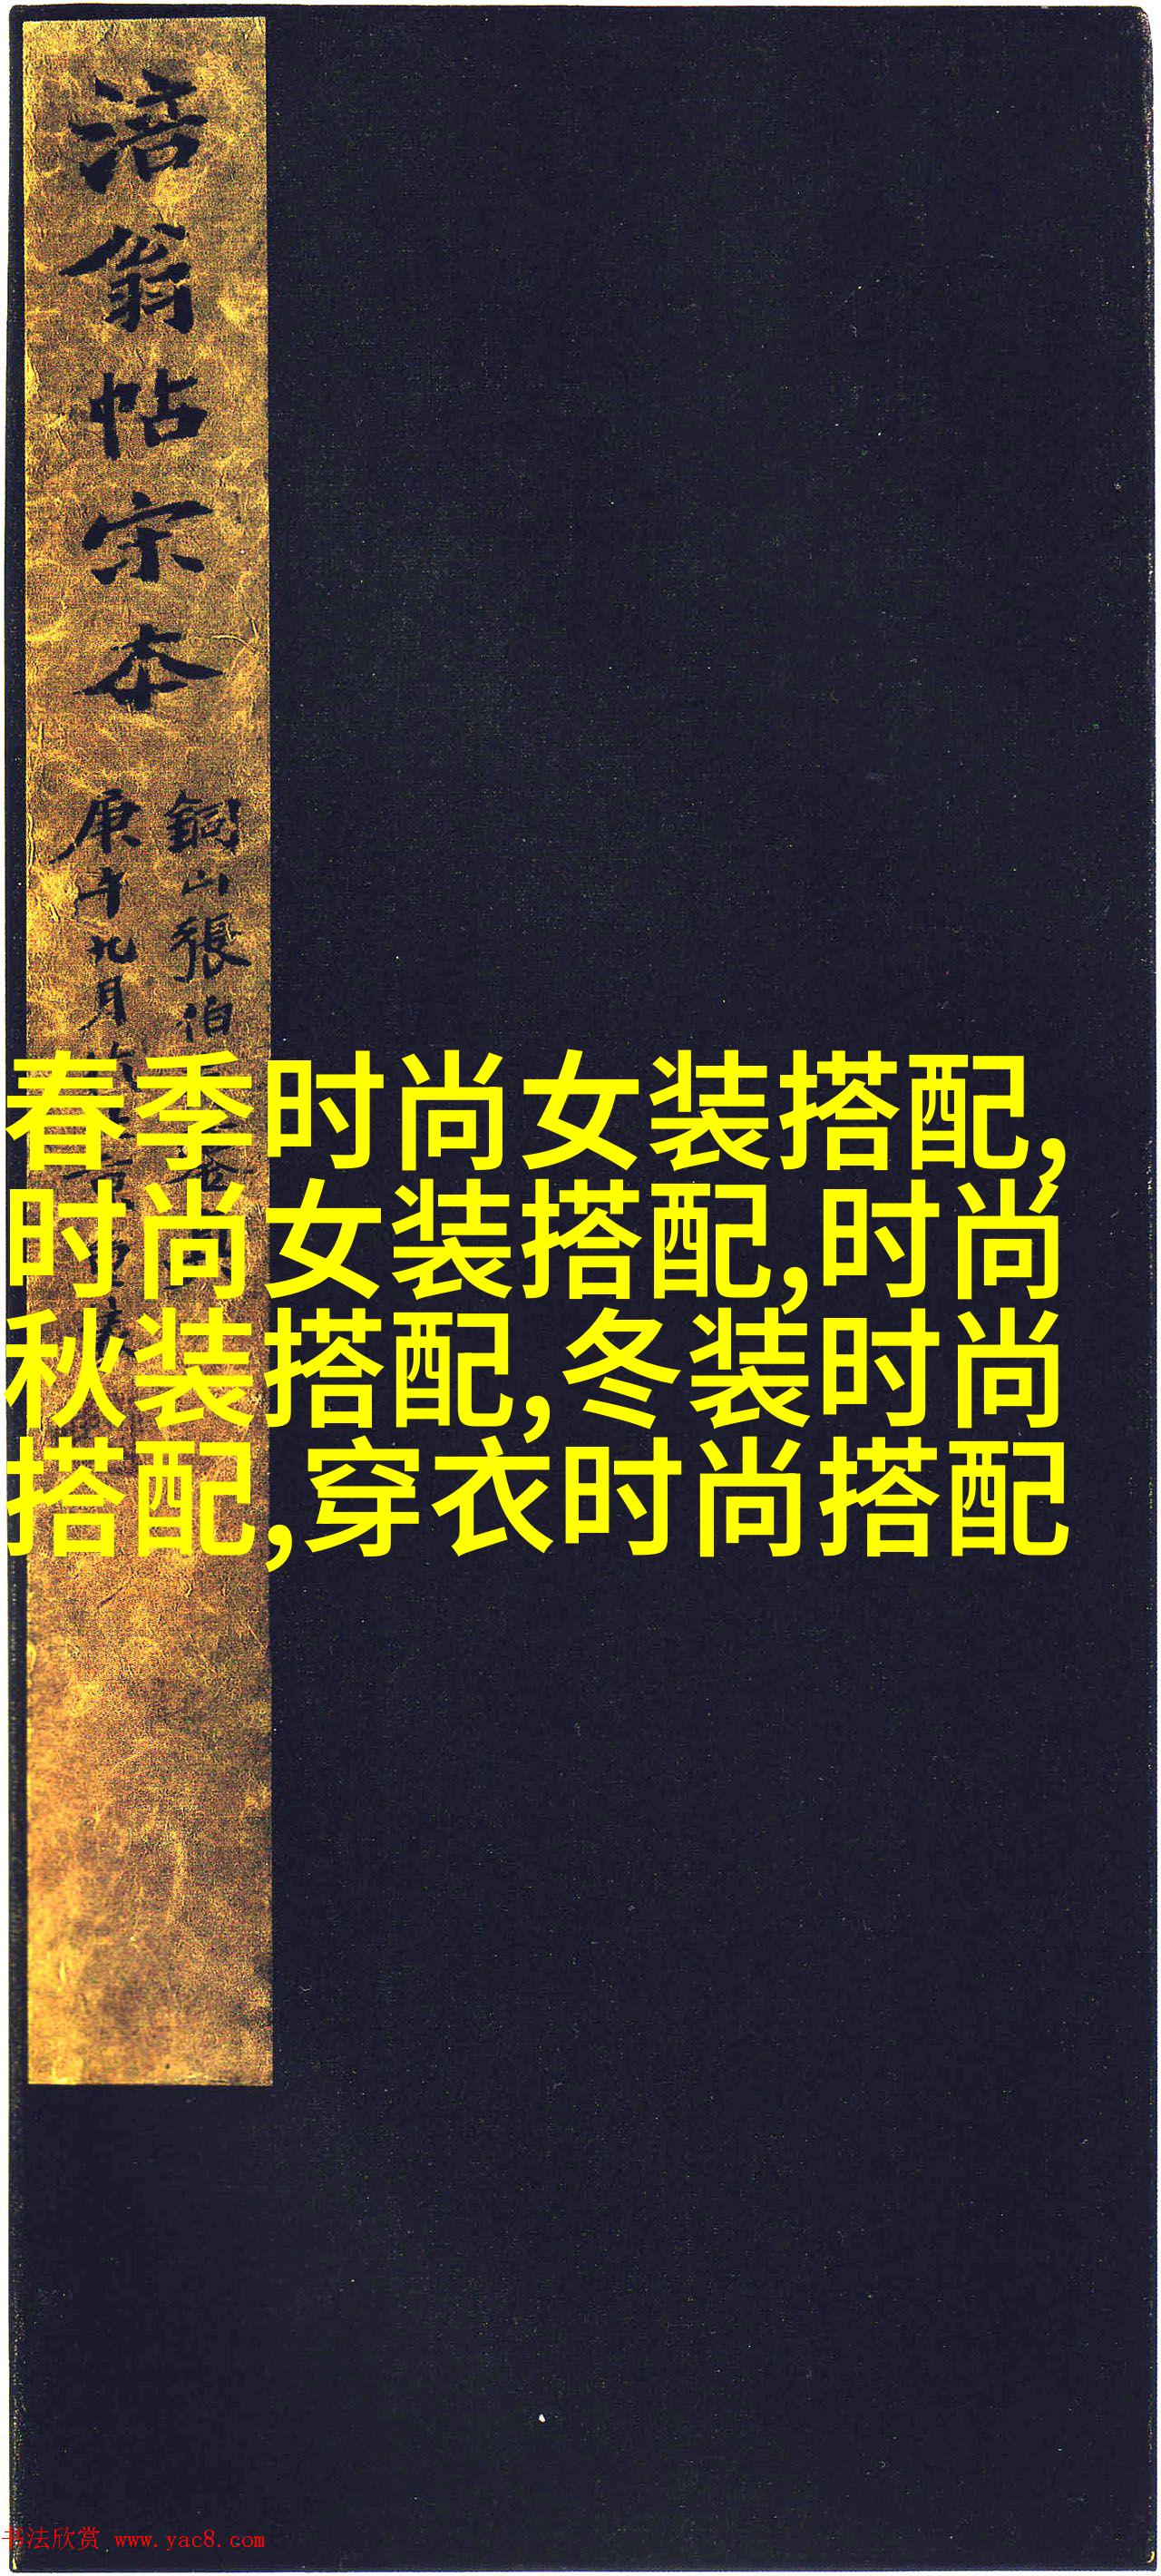 涪翁帖宋本
銅山張伯
庚午九月
春季时尚女装搭配,
时尚女装搭配,时尚
秋装搭配,冬装时尚
搭配,穿衣时尚搭配
书法欣赏 www.yac8.com